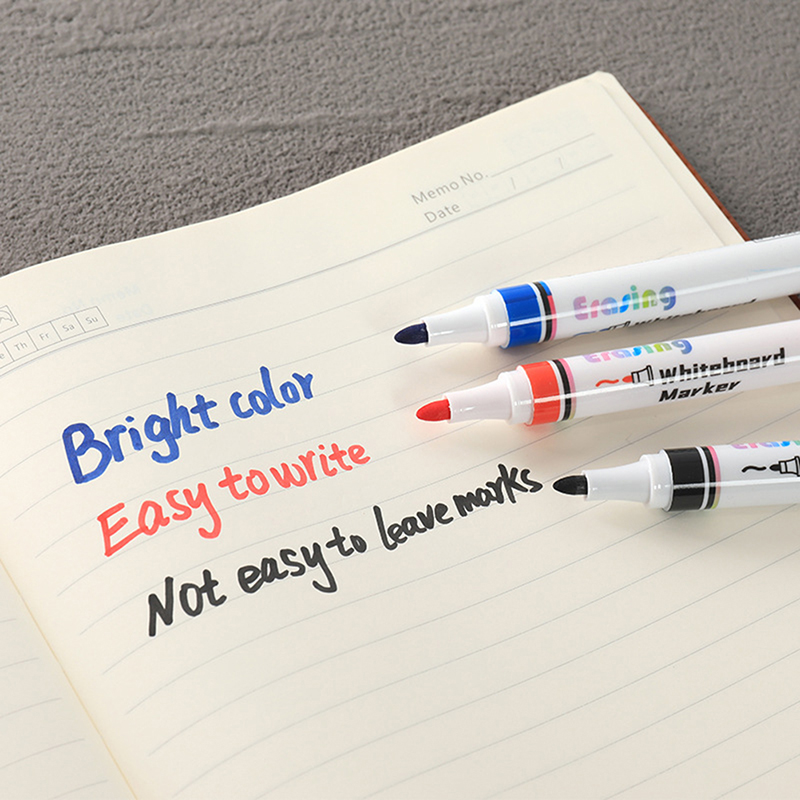 Memo No.
Date
Th Fr Sa Su
Bright color
Easy to write
Not easy to leave marks
Erasing
Erasing
Whiteboard
Marker